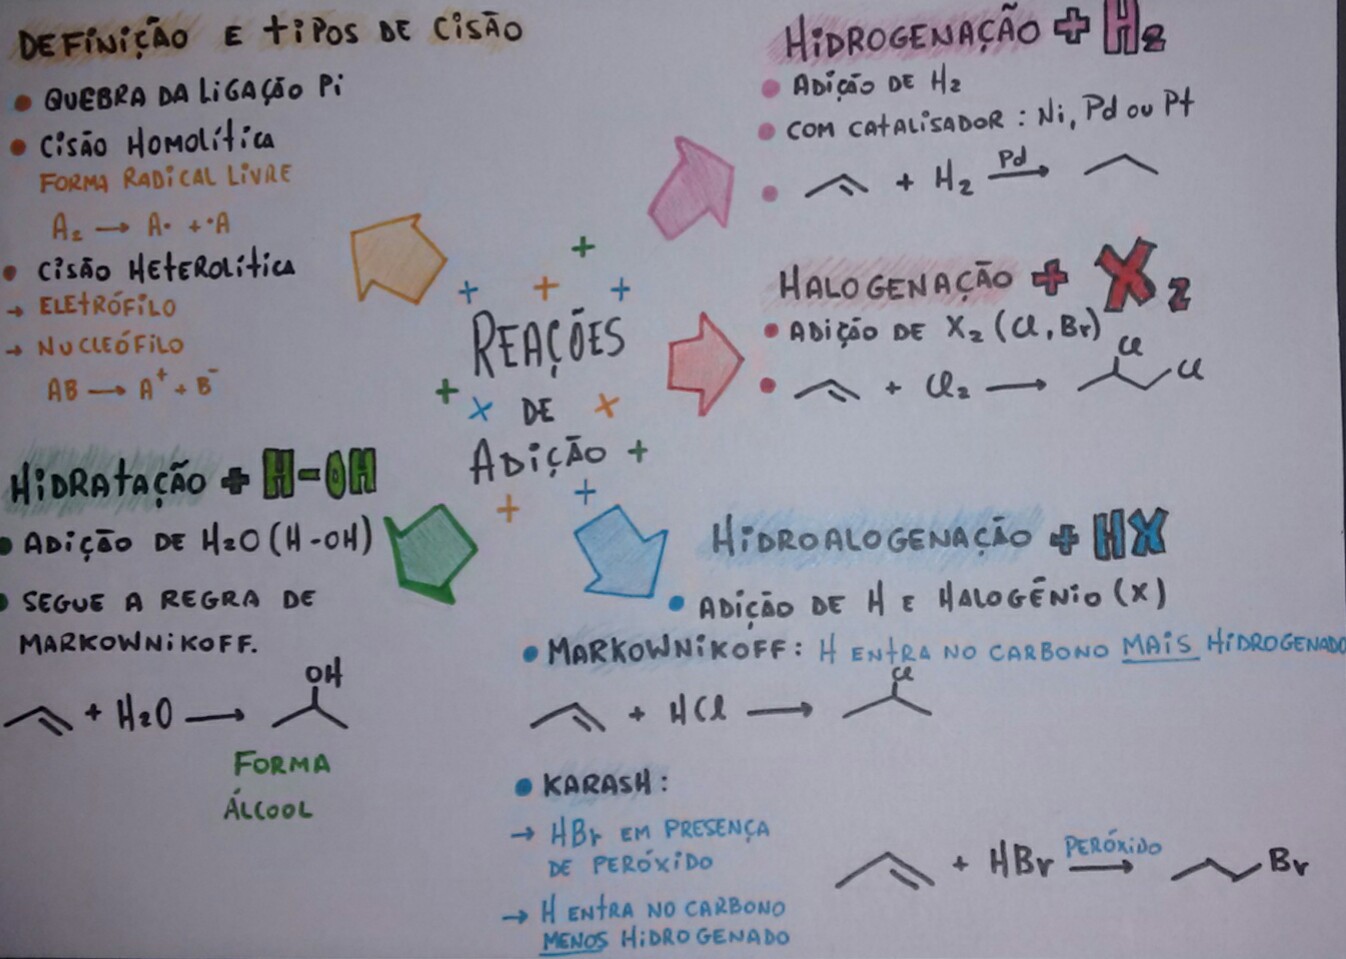 DEFINIÇÃO E TIPOS DE CISÃO
• QUEBRA DA LIGAÇÃO Pi
• CISÃO HOMOLÍTICA
FORMA RADICAL LIVRE
A₂ → A· + ·A
• CISÃO HETEROLÍTICA
→ ELETRÓFILO
→ NUCLEÓFILO
AB → A⁺ + B⁻
HIDROGENAÇÃO + H₂
• ADIÇÃO DE H₂
• COM CATALISADOR : Ni, Pd ou Pt
+ H₂ Pd →
HALOGENAÇÃO + X₂
• ADIÇÃO DE X₂ (Cl, Br)
+ Cl₂ → Cl Cl
REAÇÕES
DE
ADIÇÃO
HIDRATAÇÃO + H-OH
• ADIÇÃO DE H₂O (H-OH)
• SEGUE A REGRA DE
MARKOWNIKOFF.
+ H₂O → OH
FORMA
ÁLCOOL
HIDROALOGENAÇÃO + HX
• ADIÇÃO DE H E HALOGÊNIO (X)
• MARKOWNIKOFF: H ENTRA NO CARBONO MAIS HIDROGENADO
+ HCl → Cl
• KARASH:
→ HBr EM PRESENÇA
DE PERÓXIDO
→ H ENTRA NO CARBONO
MENOS HIDROGENADO
+ HBr PERÓXIDO → Br